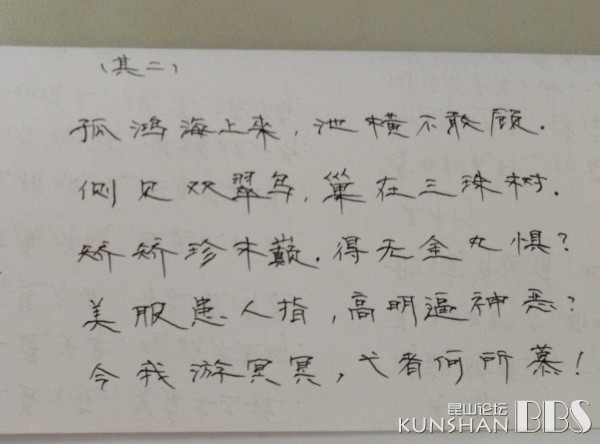 （其二）
孤鸿海上来，池横不敢顾．
侧见双翠鸟，巢在三珠树．
矫矫珍木巅．得无金丸惧？
美服患人指，高明逼神恶？
今我游冥冥，弋者何所慕！
昆山论坛
KUNSHAN BBS